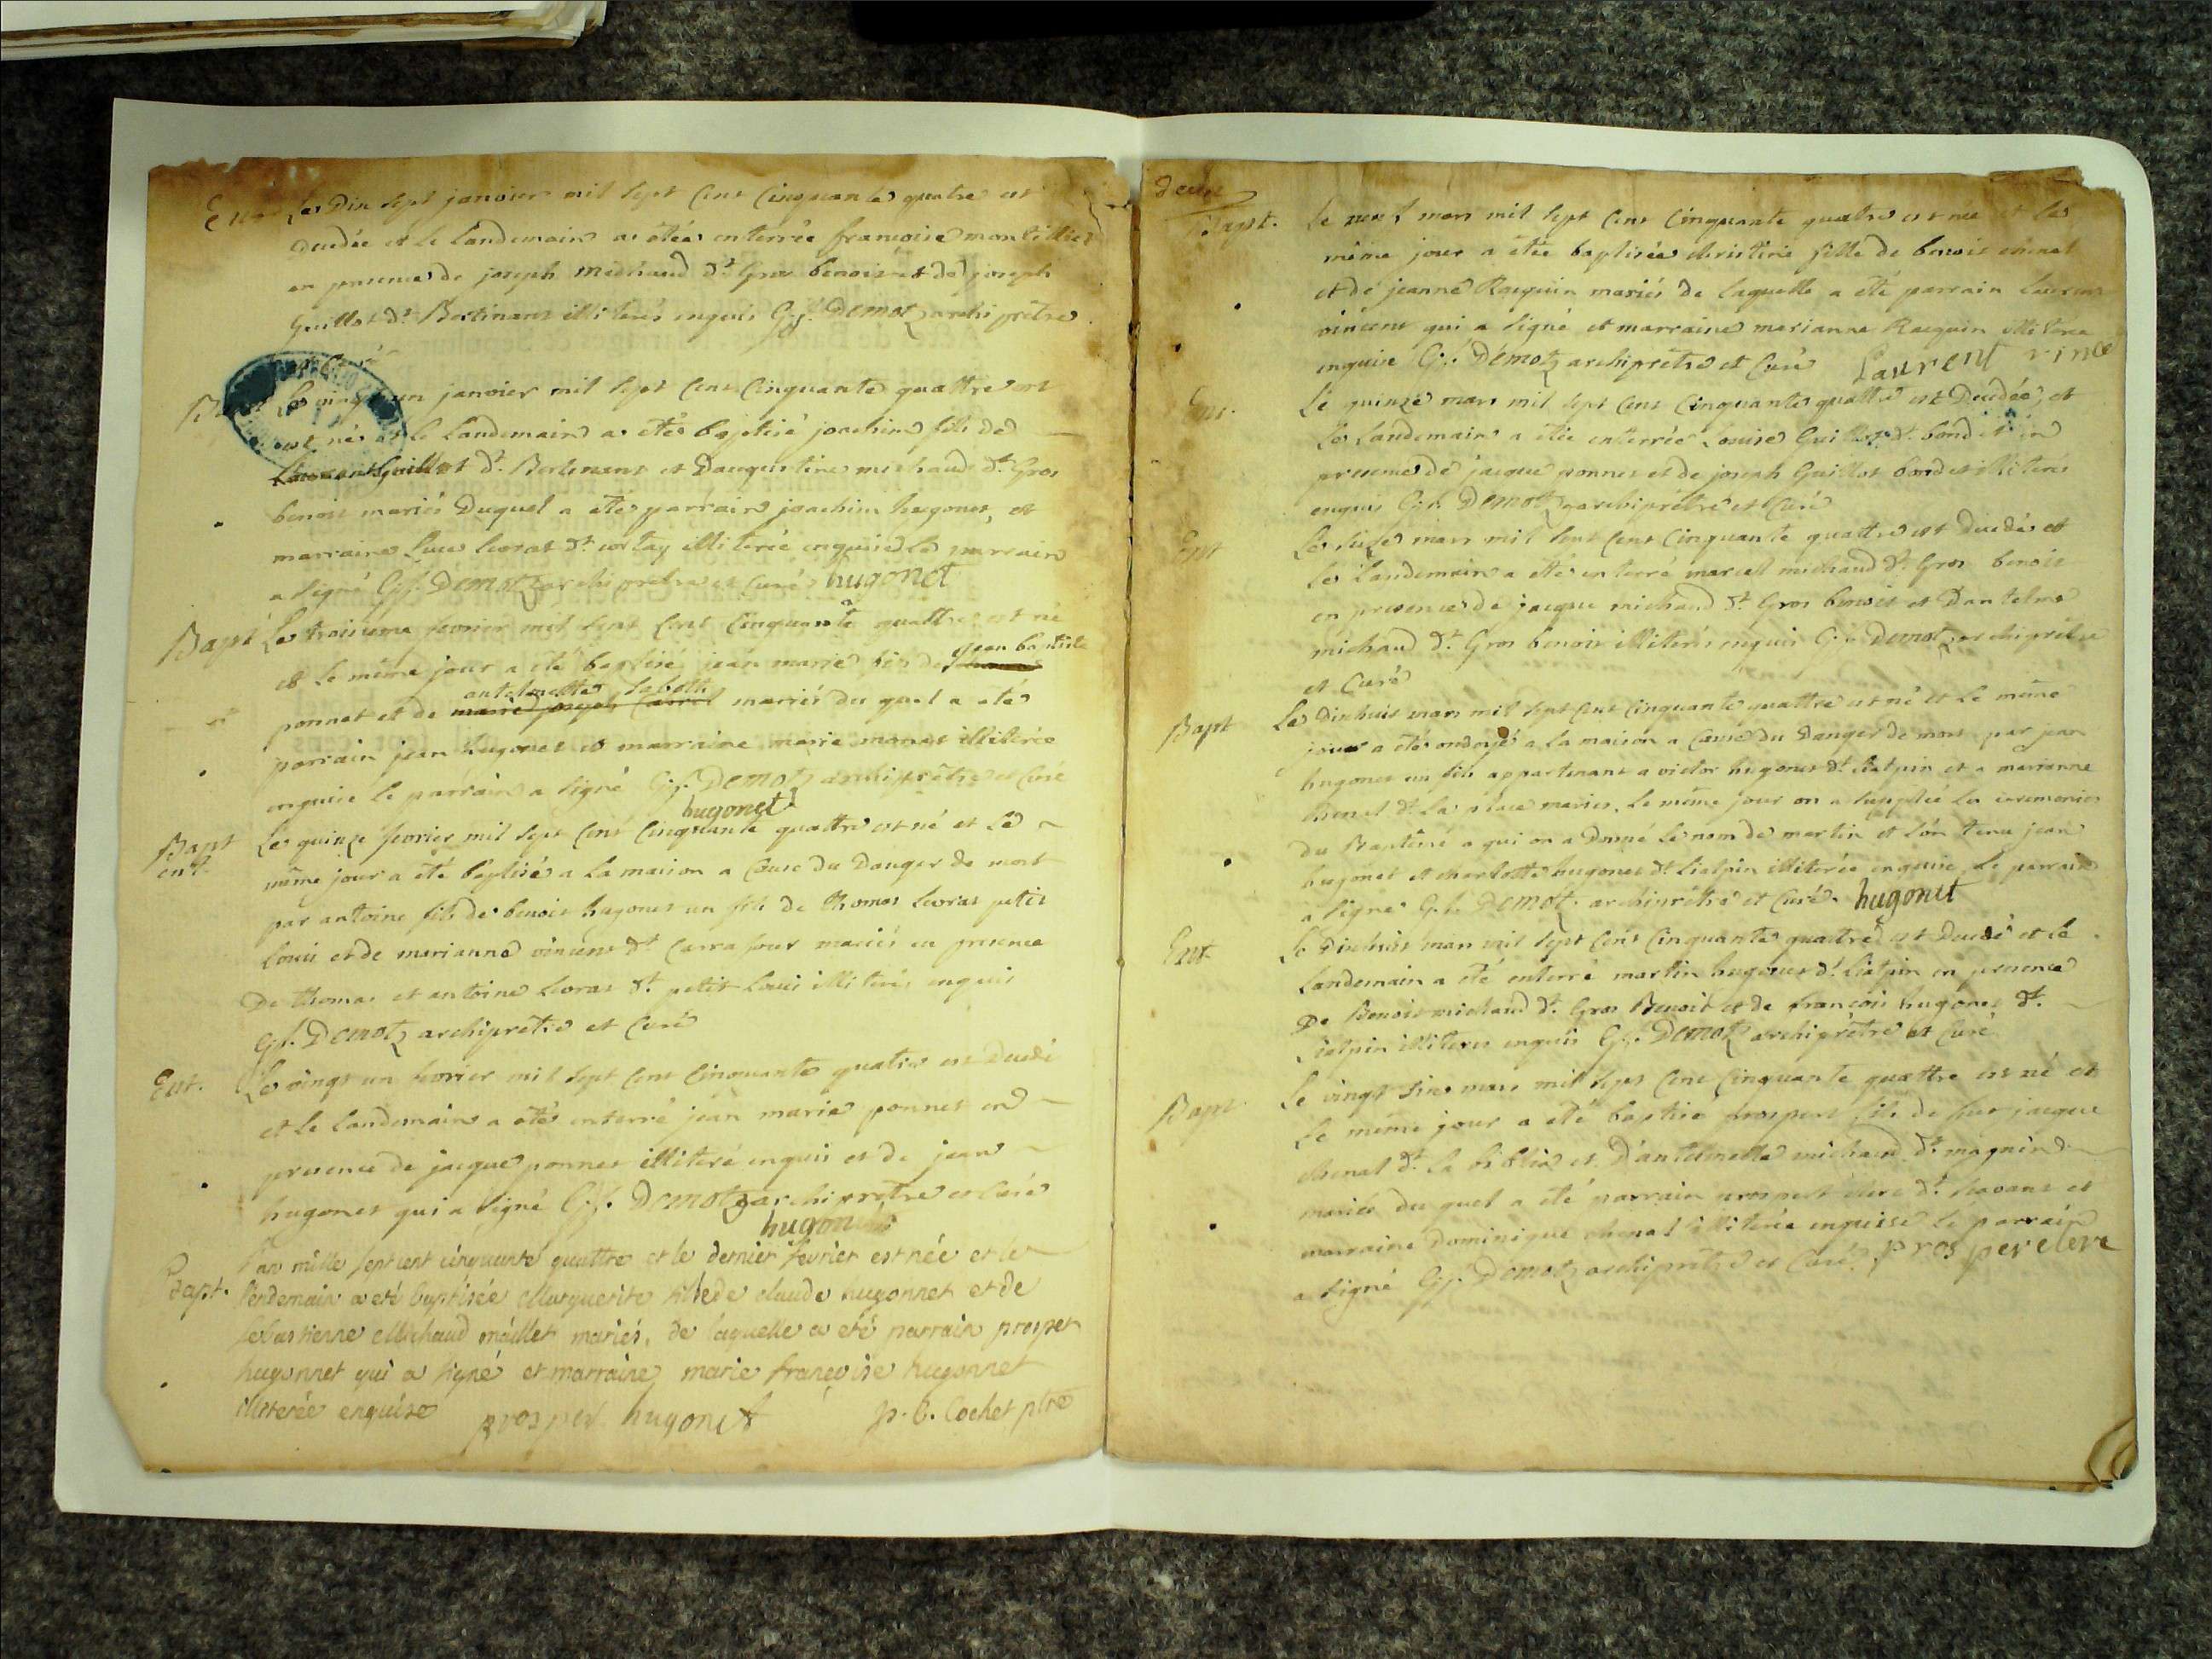 Ent Le Dix sept janvier mil sept cent Cinquante quatre est
decedée et le landemain a étée enterrée francoise montillier
en presence de joseph michaud dt Gros benoit et de joseph
Guillot dt Bertinant illiterés enquis G.f. Demotz archiprêtre
et Curé
Bapt Le vingt un janvier mil sept cent Cinquante quattre est
est né et le Landemain a été baptisé joachim fils de
Laurent Guillot dt Bertinant et Daugustine michaud dt Gros
benoit mariés Duquel a été parrain joachim hugonet, et
marraine Luce illiterée enquise le parrain
a signé G.f. Demotz archiprêtre et Curé hugonet
Bapt Le troisieme fevrier mil sept cent Cinquante quattre est né
et le même jour a été baptisé jean marie fils de jean baptiste
ponnet et de antelmette marie joseph mariés du quel a eté
parrain jean hugonet et marraine marie monet illiterée
enquise le parrain a signé G.f. Demotz archiprêtre et Curé
hugonet
Bapt
ent. Le quinze fevrier mil sept cent Cinquante quattre est né et le
même jour a été baptisé a la maison a Cause du Danger de mort
par antoine fils de benoit hugonet un fils de thomas petit
Louis et de marianne vincent dt Carra four mariés en presence
De thomas et antoine dt petit Louis illiterés enquis
G.f. Demotz archiprêtre et Curé
Ent. Le vingt un fevrier mil sept cent Cinquante quatre est decedé
et le landemain a été enterré jean marie ponnet en
presence de jacque ponnet illiteré enquis et de jean
hugonet qui a signé G.f. Demotz archiprêtre et Curé
hugonet
Bapt. L'an mille sept cent cinquante quattre et le dernier fevrier est née et le
lendemain a eté baptisée Marguerite fille de claude hugonnet et de
sebastienne Michaud maillet mariés, de laquelle a eté parrain prosper
hugonnet qui a signé et marraine marie françoise hugonnet
illiterée enquise prosper hugonet p. C. Cochet ptre
deux
Bapt. Le neuf mars mil sept cent Cinquante quattre est née et le
même jour a étée baptisée christine fille de benoit chenal
et de jeanne Racquin mariés de laquelle a été parrain laurent
vincent qui a signé et marraine marianne Racquin illiterée
enquise G.f. Demotz archiprêtre et Curé Laurent vince
Ent. Le quinze mars mil sept cent Cinquante quattre est Decedée, et
le Landemain a étée enterrée Louise Guillot dt bondet en
presence de jacque ponnet et de joseph Guillot bondet illiterés
enquis G.f. Demotz archiprêtre et Curé
Ent Le seize mars mil sept cent Cinquante quattre est decedé et
le Landemain a été enterré marcel michaud dt Gros benoit
en presence de jacque michaud dt Gros benoit et Dantelme
michaud dt Gros benoit illiterés enquis G.f. Demotz archiprêtre
et Curé
Bapt Le Dixhuit mars mil sept cent Cinquante quattre est né et le même
jour a été ondoyé a la maison a Cause du Danger de mort par jean
hugonet un fils appartenant a victor hugonet dt Liatpin et a marianne
chenal dt la place mariés. Le même jour on a supplée les ceremonies
du Baptême a qui on a Donné le nom de martin et l'on tenu jean
hugonet et charlotte hugonet dt Liatpin illiterée enquise, le parrain
a signé G.f. Demotz archiprêtre et Curé. hugonet
Ent Le Dixhuit mars mil sept cent Cinquante quattre est Decedé et le
landemain a été enterré martin hugonet dt Liatpin en presence
De Benoit michaud dt Gros Benoit et de françois hugonet dt
Liatpin illiteres enquis G.f. Demotz archiprêtre et Curé
Bapt Le vingt six mars mil sept cent Cinquante quattre est né et
le même jour a été baptisé prospert fils de sieur jacque
chenal dt la biblia et D'antelmette michaud dt magnin
mariés du quel a été parrain prospert clerc dt et
marraine Dominique chenal illiterée enquisse le parrain
a signé G.f. Demotz archiprêtre et Curé. prosper clerc